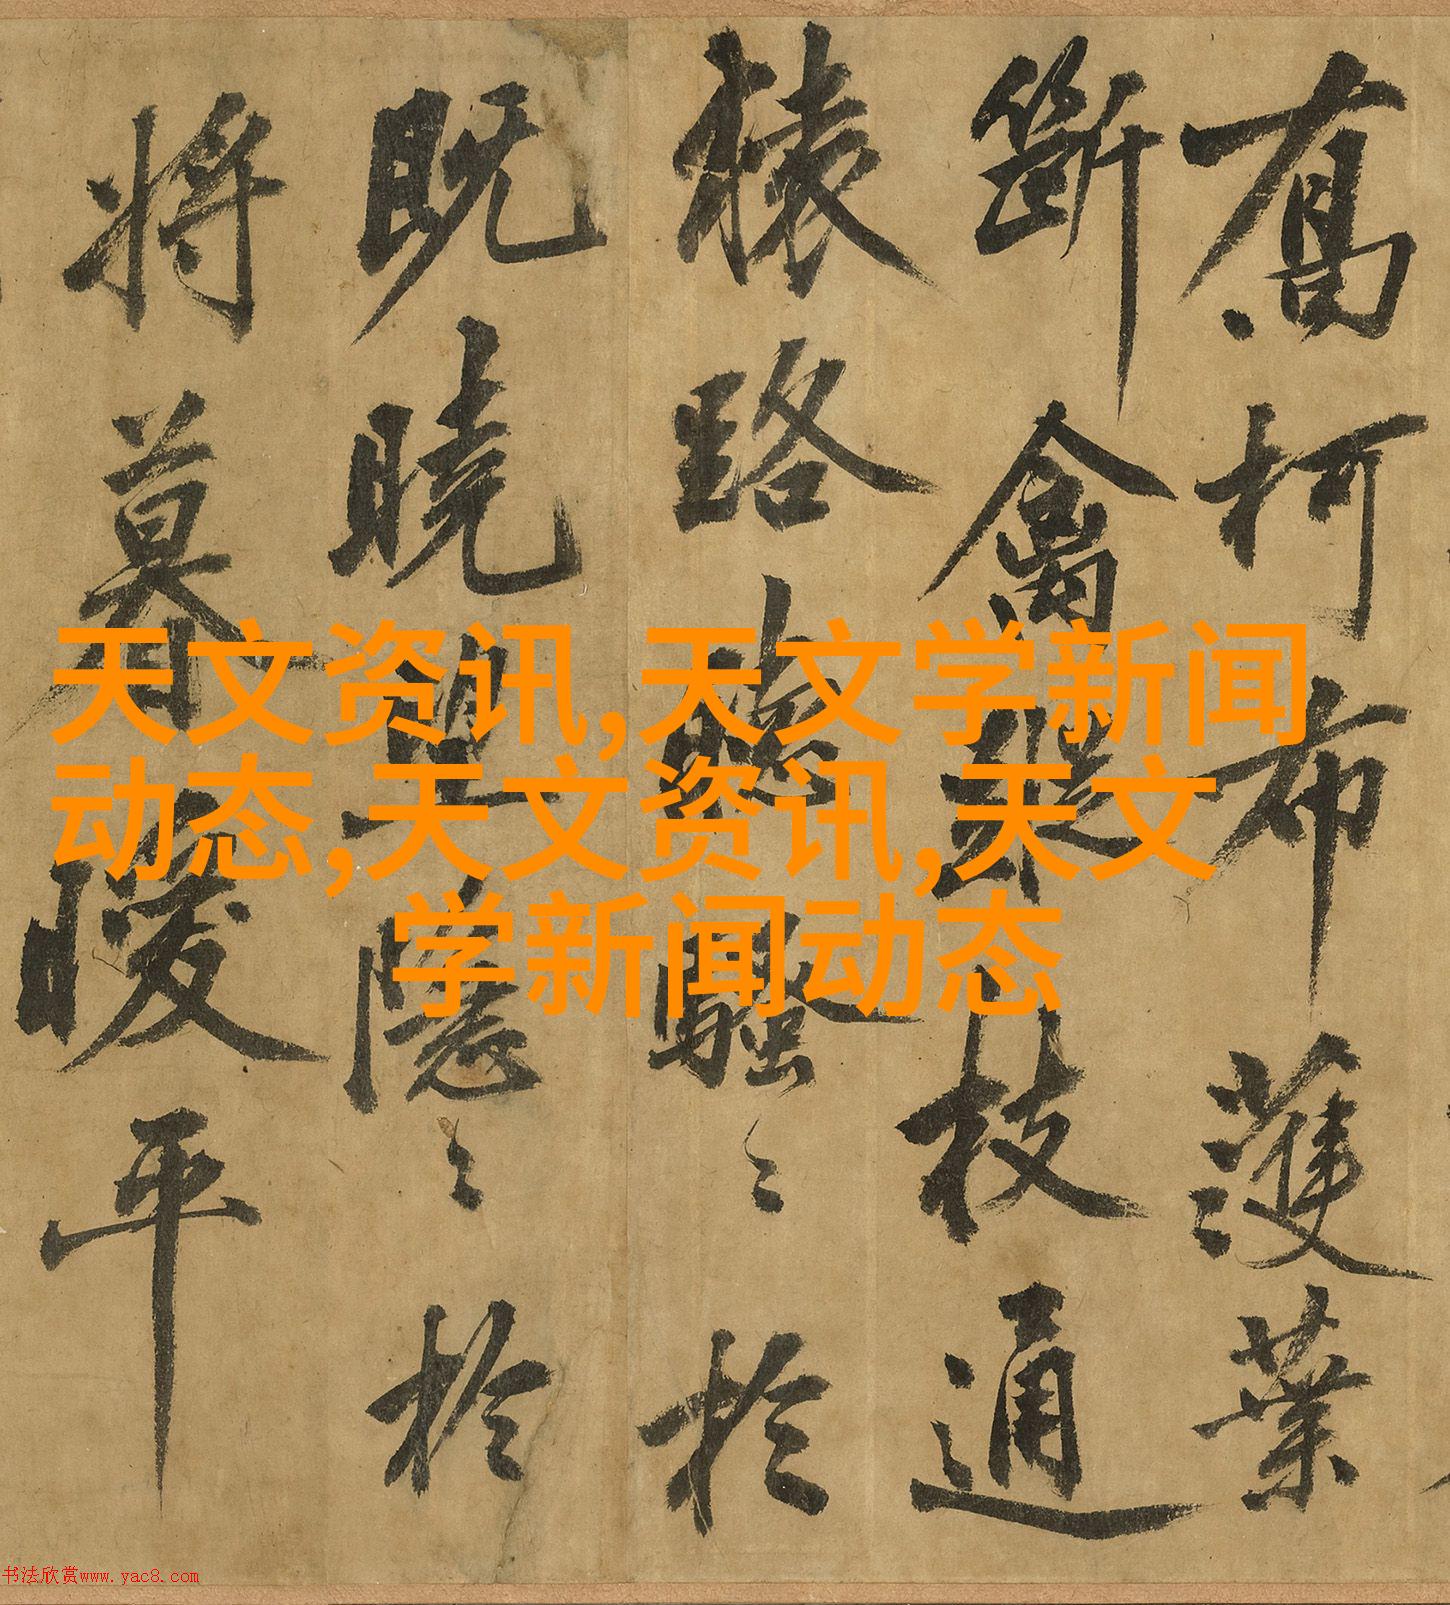 喬柯布濩葉
斷禽蹤枝通
猨路聽騷〻於
既曉望隱〻於
將暮曖平
天文资讯,天文学新闻
动态,天文资讯,天文
学新闻动态
书法欣赏www.yac8.com